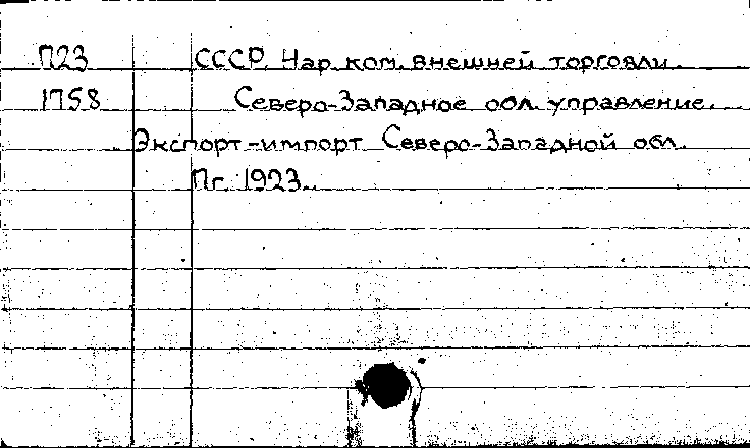 П23 СССР. Нар. ком. внешней торговли.
1758 Северо-Западное обл. управление.
Экспорт-импорт Северо-Западной обл.
Пг. 1923.